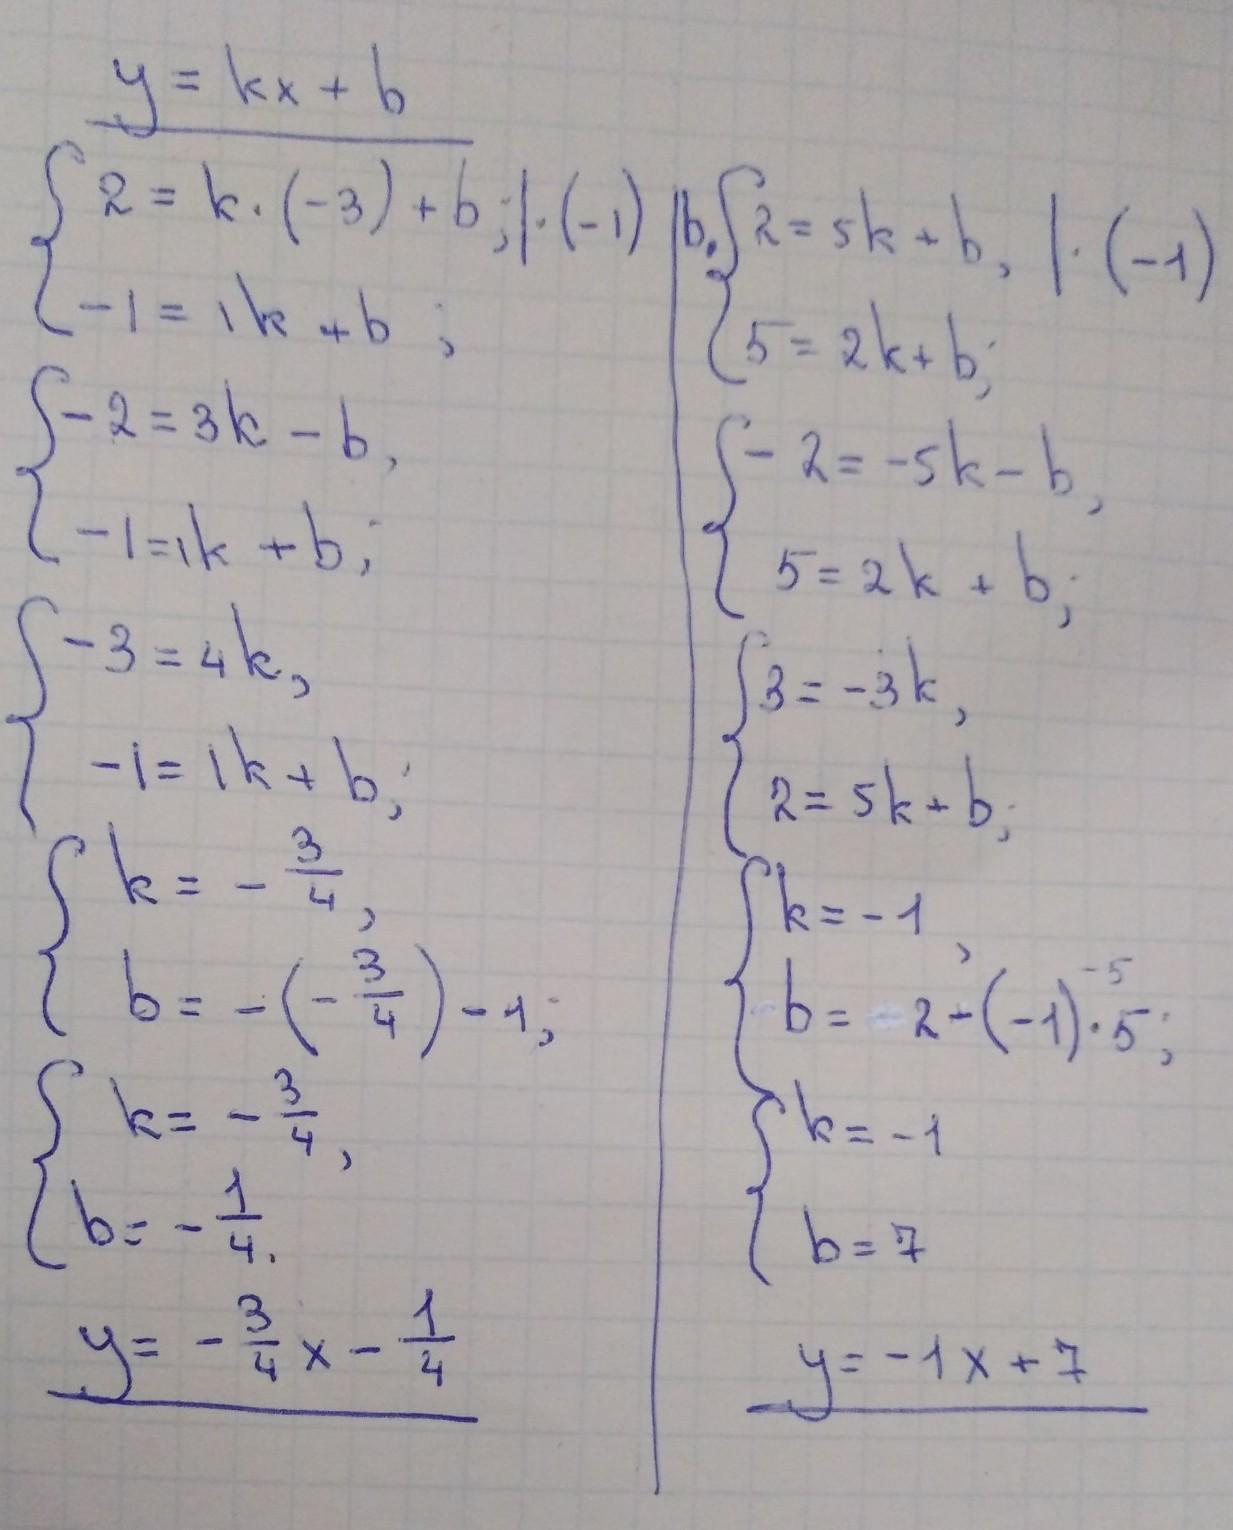 y = kx + b
{ 2 = k · (-3) + b; | · (-1)
-1 = 1k + b ;
{ -2 = 3k - b,
-1 = 1k + b;
{ -3 = 4k,
-1 = 1k + b;
{ k = - 3/4,
b = -(- 3/4) - 1;
{ k = - 3/4,
b = - 1/4.
y = - 3/4 x - 1/4
b. { 2 = 5k + b, | · (-1)
5 = 2k + b;
{ -2 = -5k - b,
5 = 2k + b;
{ 3 = -3k,
2 = 5k + b;
{ k = -1,
-5
b = 2 - (-1) · 5;
{ k = -1
b = 7
y = -1x + 7